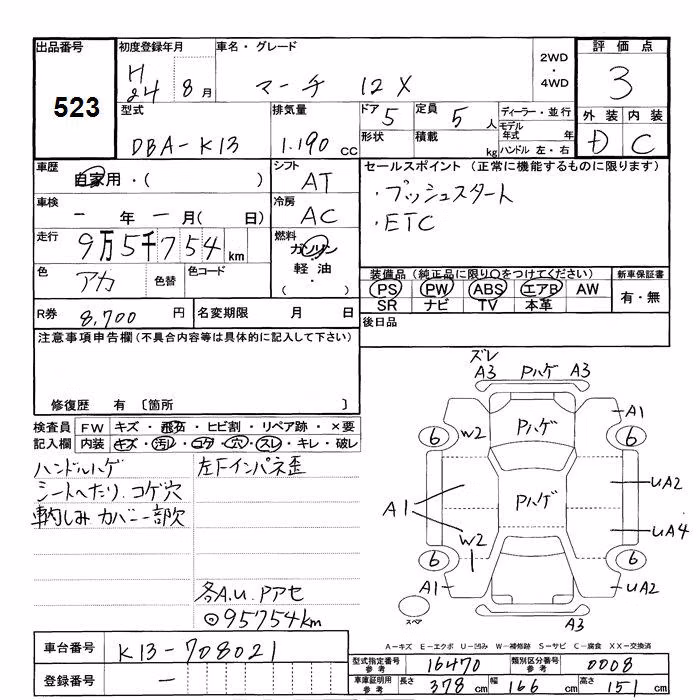 出品番号 初度登録年月 車名・グレード 2WD・4WD 評価点
523 H24 8月 マーチ 12X 3
型式 排気量 ドア 5 定員 5人 ディーラー・並行 外装 内装
DBA-K13 1.190cc 形状 積載 kg モデル年式 年 D C
ハンドル 左・右
車歴 自家用・( ) シフト AT セールスポイント (正常に機能するものに限ります)
車検 ー年ー月( 日) 冷房 AC ・プッシュスタート
・ETC
走行 9万5千754km 燃料 ガソリン・軽油・( )
色 アカ 色替 色コード 装備品 (純正品に限り○をつけてください) 新車保証書
PS PW ABS エアB AW 有・無
SR ナビ TV 本革
R券 8,700円 名変期限 月 日 後日品
注意事項申告欄 (不具合内容等は具体的に記入して下さい)
修復歴 有 〔箇所 〕
検査員記入欄 FW キズ・飛石・ヒビ割・リペア跡・×要
内装 キズ・汚レ・コゲ・穴・スレ・キレ・破レ
ハンドルハゲ 左Fインパネ歪
シートへたり.コゲ穴
車内しみ カバー一部欠
各A.U.Pアセ
◎95754km
ズレ
A3 Pハゲ A3
A1
6 W2 Pハゲ 6
A1 Pハゲ UA2
UA4
W2
6 6
A1 UA2
スペア A3
A-キズ E-エクボ U-凹み W-補修跡 S-サビ C-腐食 XX-交換済
車台番号 K13-708021
型式指定番号 参考 16470 類別区分番号 参考 0008
登録番号 ー
車庫証明用 参考 長さ 378cm 幅 166cm 高さ 151cm